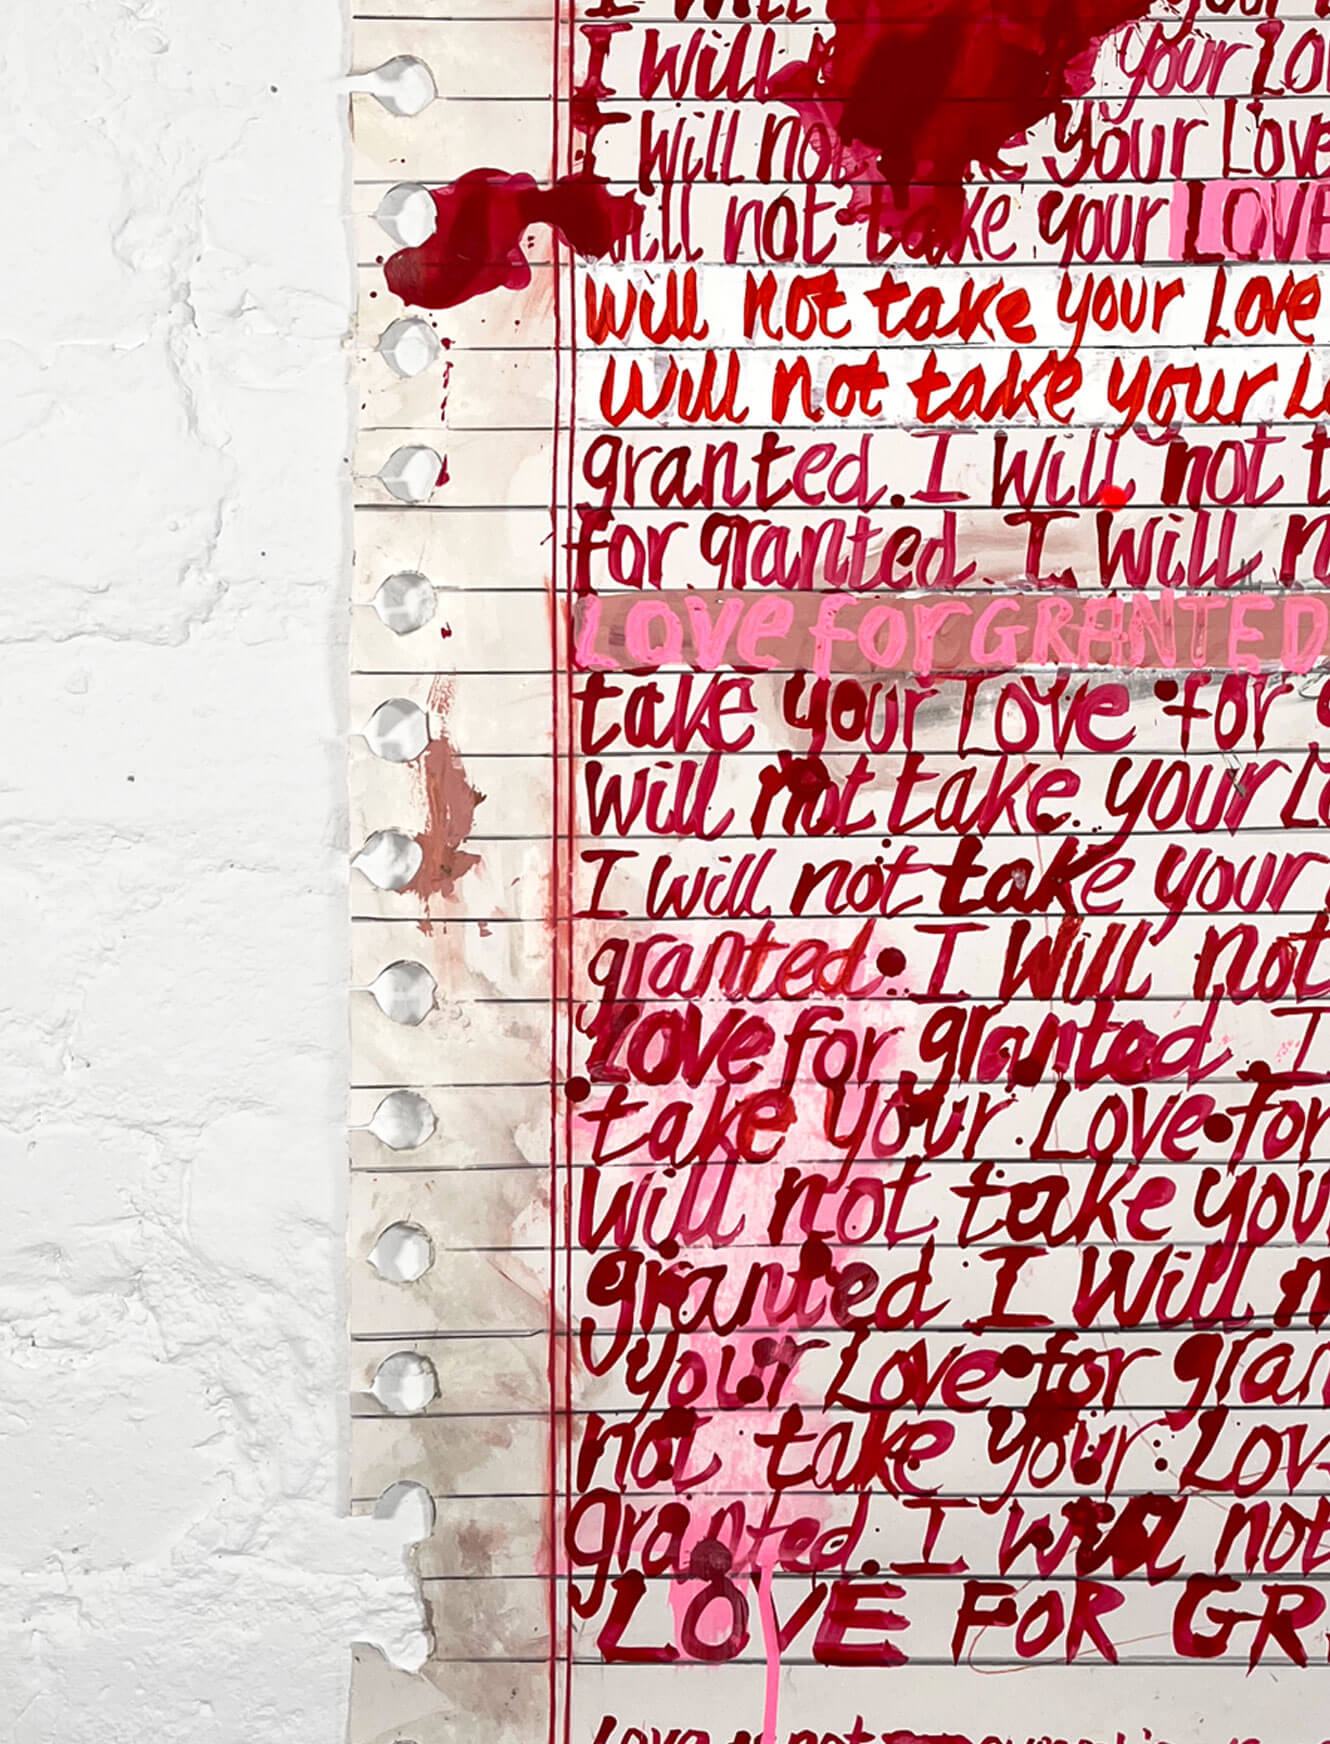 I Will your
I Will your Lo
I Will no your Love
will not take your LOVE
Will not take your Love
Will not take your L
granted. I Will not t
for granted. I Will n
Love for GRANTED
take your Love for
Will not take your Lo
I Will not take your
granted. I Will not
Love for granted. I
take your Love for
Will not take you
granted I Will n
your Love for gran
not take your Lov
granted. I will not
LOVE FOR GR
Love is not